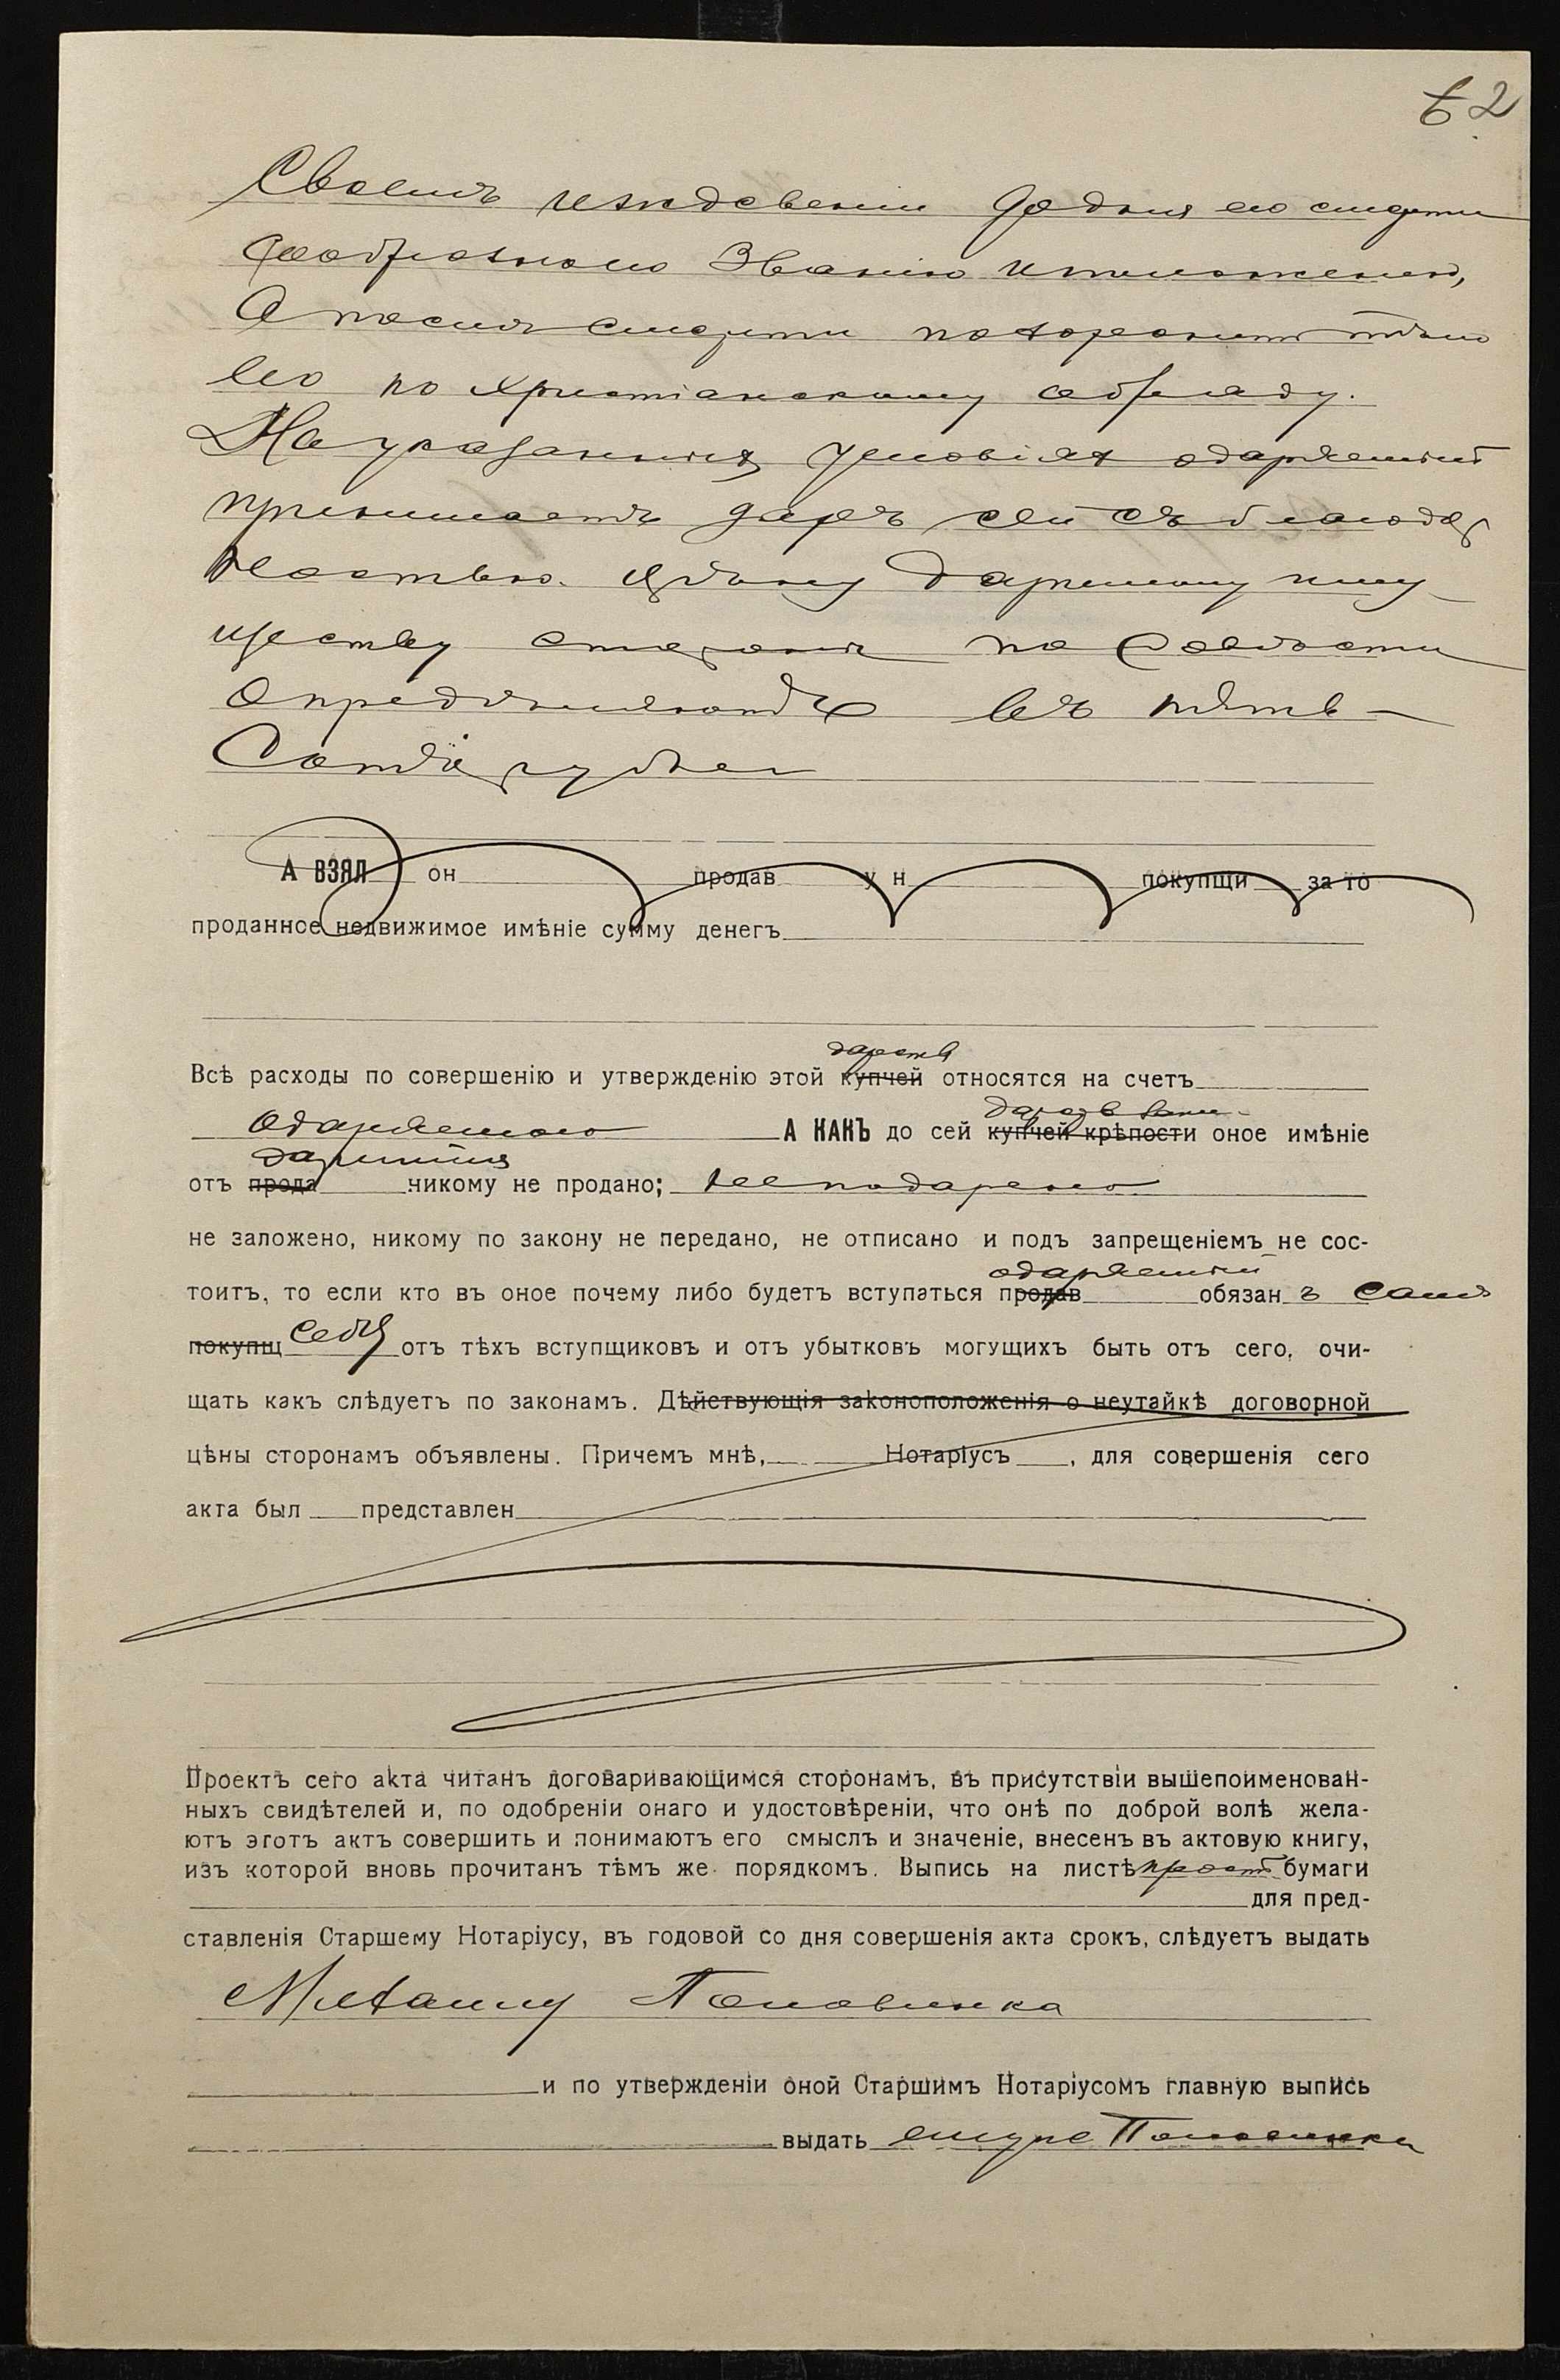 62
Своемъ иждевеніи до дня его смерти
сообразного званію и положенію,
а послѣ смерти похоронить тѣло
его по христіанскому обряду.
На указанныхъ условіях одаряемый
принимаетъ даръ сей съ благодар
ностью. Цѣну даримому иму
ществу стороны по совѣсти
опредѣляютъ въ пять
Сотъ рублей
А ВЗЯЛ он продав у н покупщи за то
проданное недвижимое имѣніе сумму денегъ
дарств
Всѣ расходы по совершенію и утвержденію этой купчей относятся на счетъ
одаряемого А КАКЪ до сей купчей крѣпости оное имѣніе
дарителя
отъ прода никому не продано; не подарено
не заложено, никому по закону не передано, не отписано и подъ запрещеніемъ не сос-
одаряемый
тоитъ, то если кто въ оное почему либо будетъ вступаться продав обязан ъ самъ
покупщ себя отъ тѣхъ вступщиковъ и отъ убытковъ могущихъ быть отъ сего, очи-
щать какъ слѣдуетъ по законамъ. Дѣйствующія законоположенія о неутайкѣ договорной
цѣны сторонамъ объявлены. Причемъ мнѣ, Нотаріусъ , для совершенія сего
акта был представлен
Проектъ сего акта читанъ договаривающимся сторонамъ, въ присутствіи вышепоименован-
ныхъ свидѣтелей и, по одобреніи онаго и удостовѣреніи, что онѣ по доброй волѣ жела-
ютъ этотъ актъ совершить и понимаютъ его смыслъ и значеніе, внесенъ въ актовую книгу,
изъ которой вновь прочитанъ тѣмъ же порядкомъ. Выпись на листѣ прост бумаги
для пред-
ставленія Старшему Нотаріусу, въ годовой со дня совершенія акта срокъ, слѣдуетъ выдать
Михаилу Половинка
и по утвержденіи оной Старшимъ Нотаріусомъ главную выпись
выдать ему же Половинки